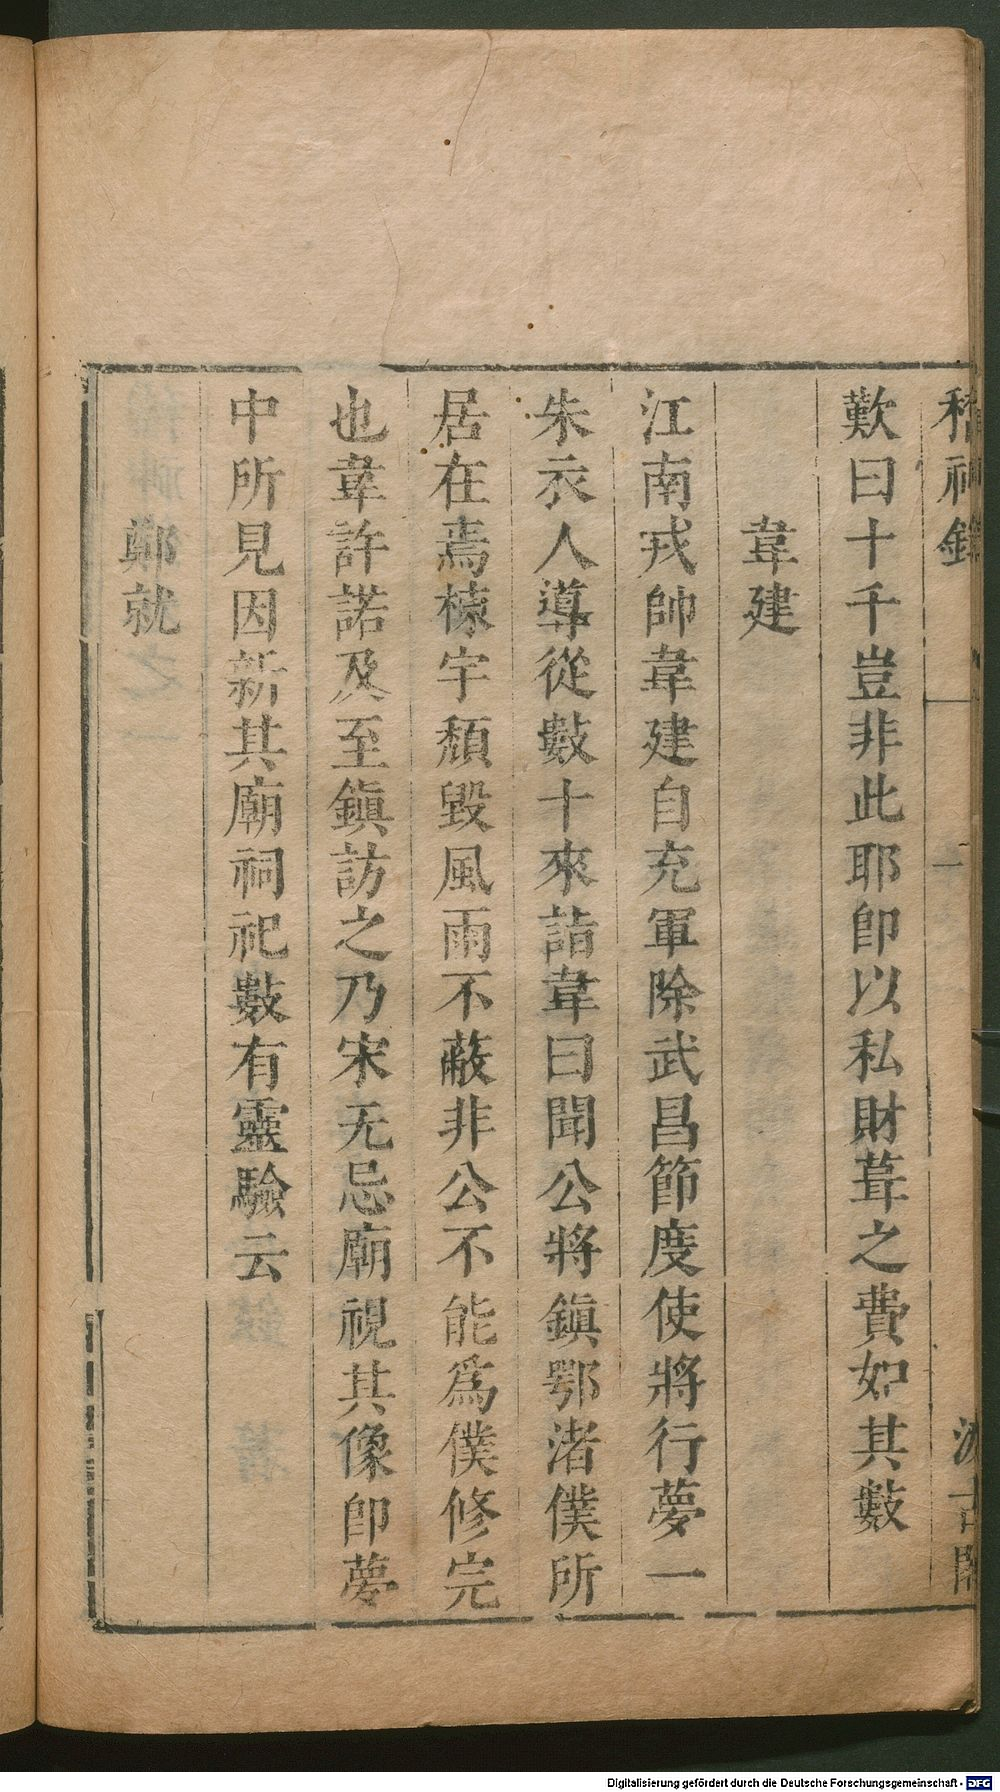 稽神錄 一 汲古閣
歎曰十千豈非此耶卽以私財葺之費如其數
韋建
江南戎帥韋建自充軍除武昌節度使將行夢一
朱衣人導從數十來詣韋曰聞公將鎭鄂渚僕所
居在焉棟宇頹毀風雨不蔽非公不能爲僕修完
也韋許諾及至鎭訪之乃宋无忌廟視其像卽夢
中所見因新其廟祠祀數有靈驗云
鄭就
Digitalisierung gefördert durch die Deutsche Forschungsgemeinschaft - DFG